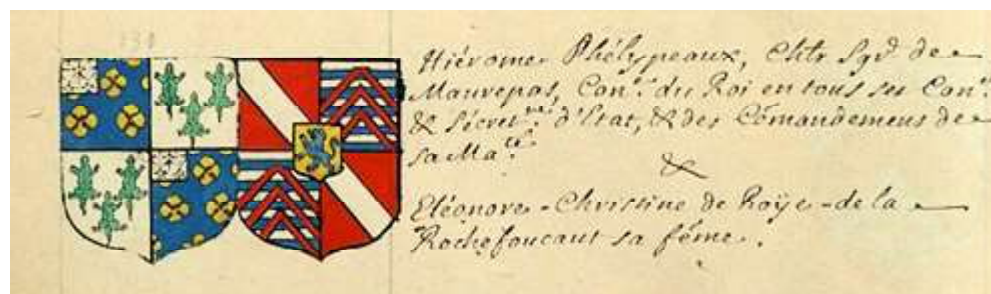 Hiérome Phélypeaux, Chlr Sgr de
Maurepas, Con.er du Roi en tous ses Con.s
& Sécret.re d'Etat, & des Cōmandemens de
sa Ma.té
&
Eléonore-Christine de Roÿe-de la
Rochefoucaut sa fēme.